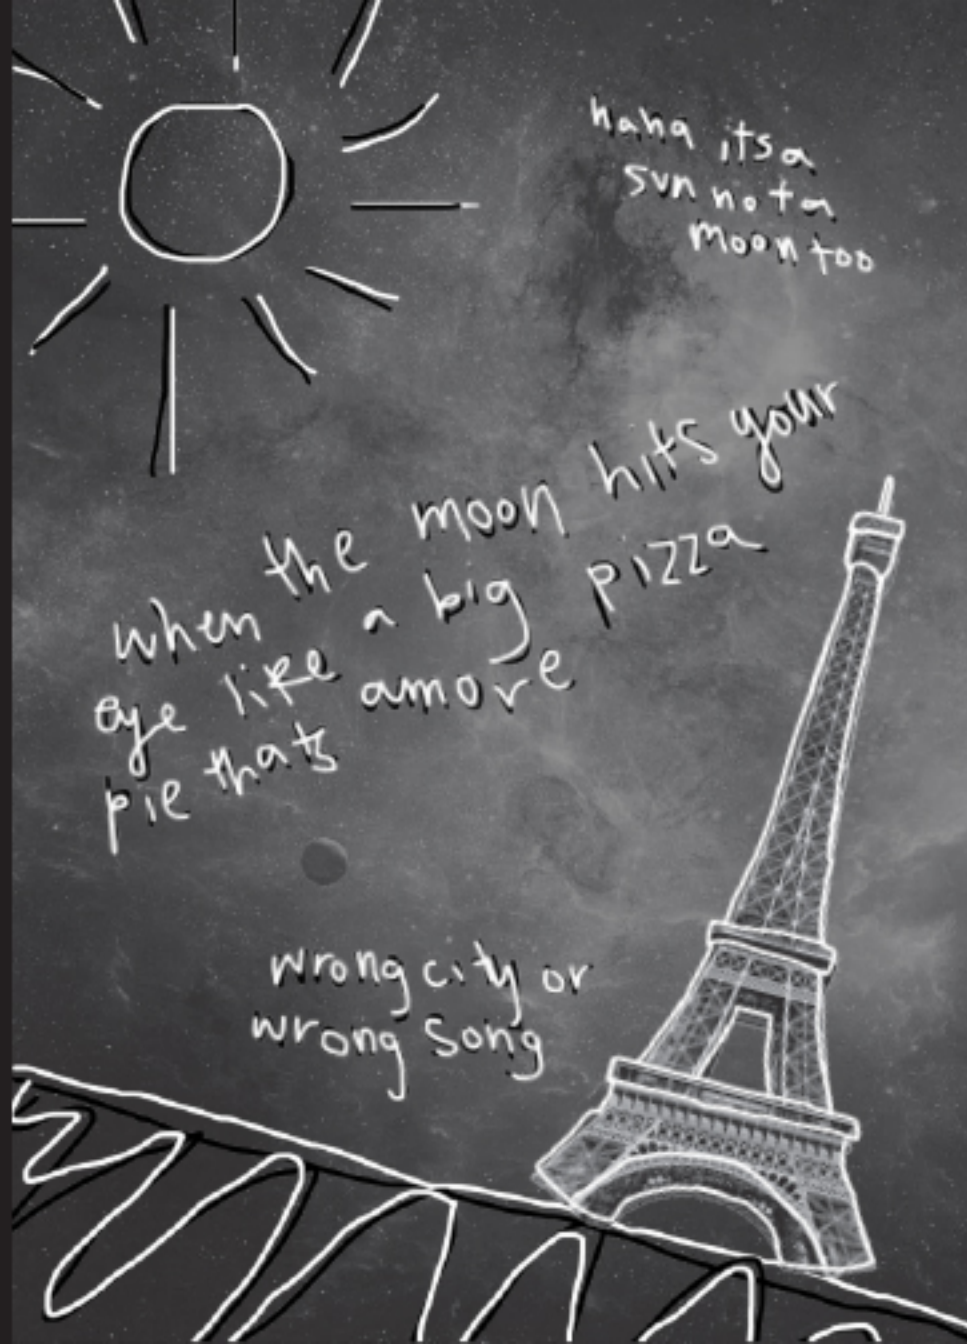 haha its a
sun not a
moon too
when the moon hits your
eye like a big pizza
pie thats amore
wrong city or
wrong song